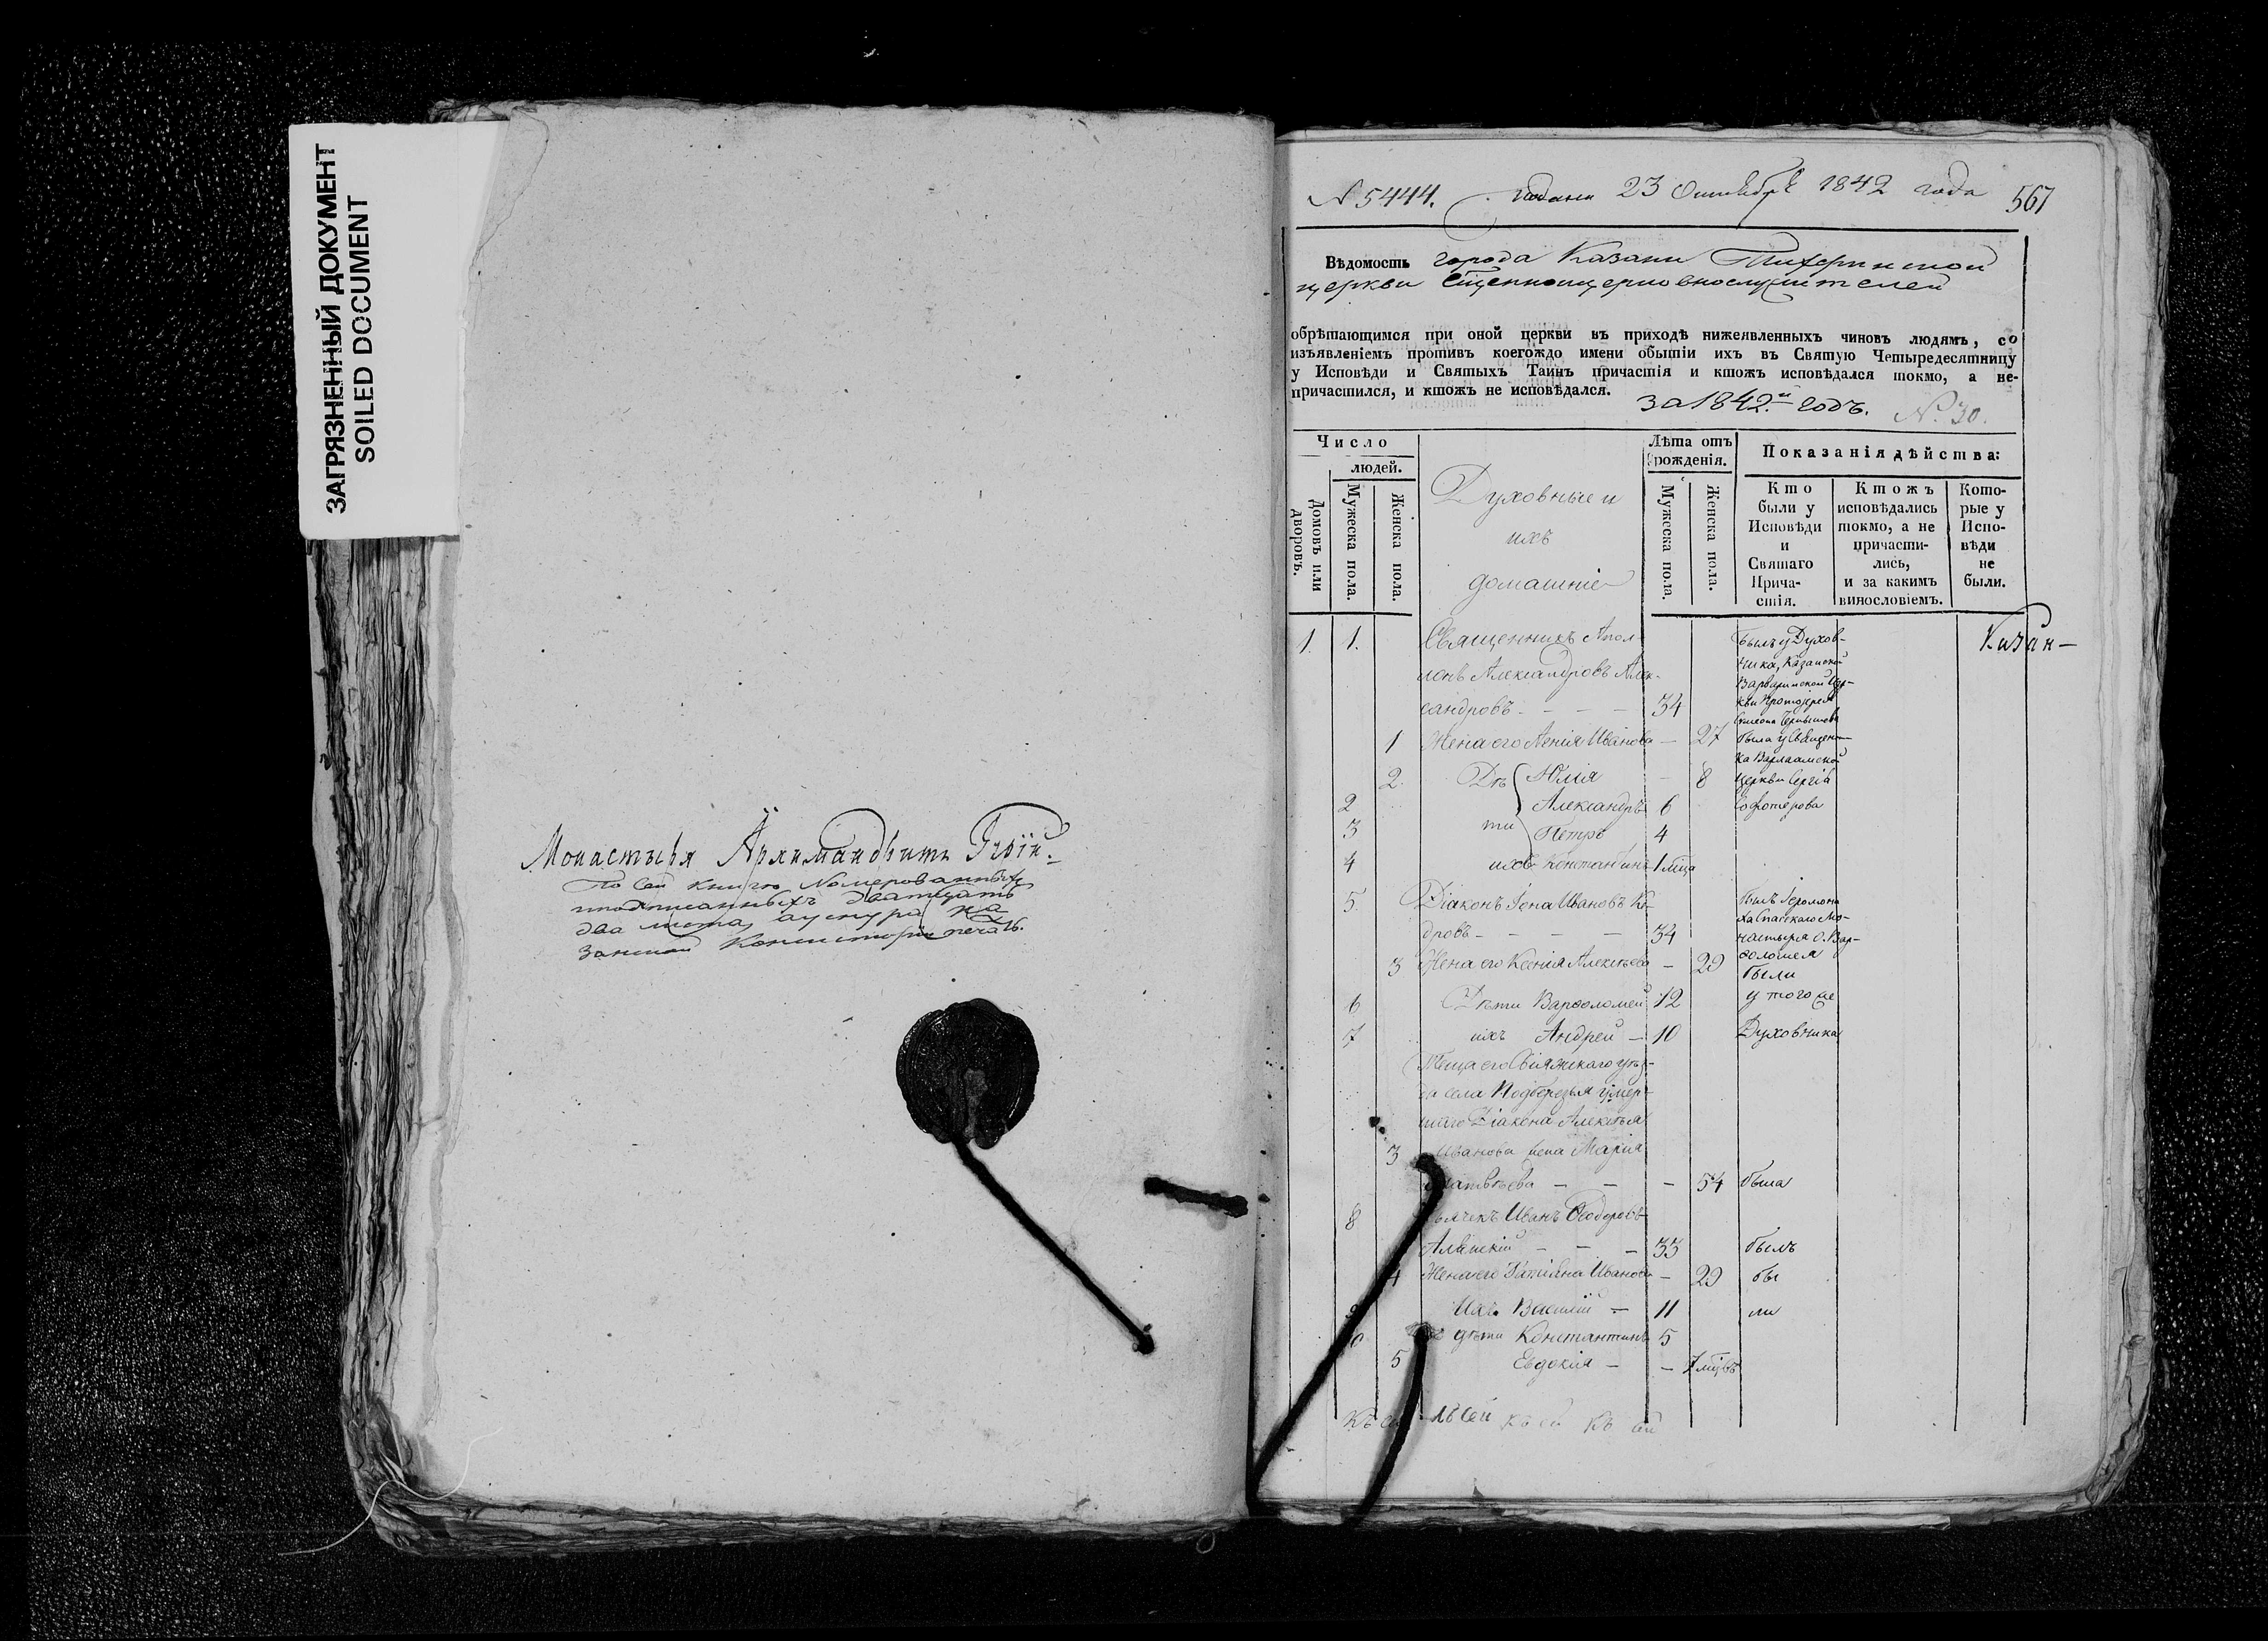 ЗАГРЯЗНЕННЫЙ ДОКУМЕНТ
SOILED DOCUMENT
Монастыря Архимандритъ
По сей книгѣ Номерованныхъ
два листа, аукура Ка
занской Консисторіи печать.
N 5444. Подана 23 Октября 1842 года 567
Вѣдомость города Казани Тихвинской
церкви Сщенноцерковнослужителей
обрѣтающимся при оной церкви въ приходѣ нижеявленныхъ чиновъ людямъ, со
изъявленіемъ противъ коегождо имени обытіи ихъ въ Святую Четыредесятницу
у Исповѣди и Святыхъ Таинъ причастія и ктожъ исповѣдался токмо, а не-
причастился, и ктожъ не исповѣдался.
за 1842.й годъ. N. 30.
Число
людей.
Домовъ или дворовъ.
Мужеска пола.
Женска пола.
Духовные и
ихъ
домашніе
Лѣта отъ
рожденія.
Мужеска пола
Женска пола.
Показанія дѣйства:
Кто
были у
Исповѣди
и
Святаго
Прича-
стія.
Ктожъ
исповѣдались
токмо, а не
причасти-
лись,
и за какимъ
винословіемъ.
Кото-
рые у
Испо-
вѣди
не
были.
1. 1. Священникъ Апол- Былъ у Духов- Казан-
лонъ Александровъ Алек- ника, Казанской
Варваринской Цер-
сандровъ - - - 34 кви Протоіерея
1 Жена его Ксенія Иванова - 27 была у Священ-
ка Варлаамской
2. Дѣ Юлія - 8 церкви Сергія
2 Александръ 6
3 ти Петръ 4
4 ихъ Константинъ 1 мѣца
5. Діаконъ Іона Ивановъ Ке- Былъ Іеромона
ха Спасскаго Мо-
дровъ - - - 34 настыря о. Вар-
3 Жена его Ксенія Алексѣева - 29 ѳоломея
были
6 Дѣти Варѳоломей 12 у того же
7 ихъ Андрей - 10 Духовника
Теща его Свіяжскаго уѣз-
да села Подберезья умер-
шаго Діакона Алексѣя
3 Иванова жена Марія
Матвѣева - - - 54 была
8 Дьячекъ Иванъ Ѳеодоровъ
- - - 33 былъ
4 Жена его Татіана Иванова - 29 бы
Ихъ Василій - 11 ли
дѣти Константинъ 5
5 Евдокія - - 7 мцовъ